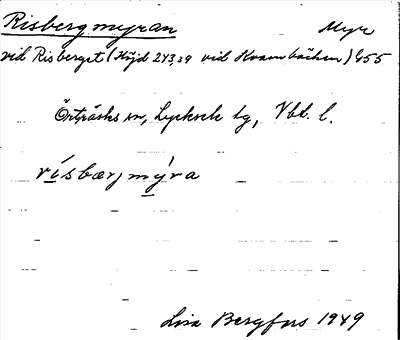 Risbergmyran Myr
vid Risberget (Höjd 243,39 vid Kvarnbäcken) G55
Örträsks sn, Lycksele tg, Vbt. l.
rísbærjmýra
Lisa Bergfors 1949